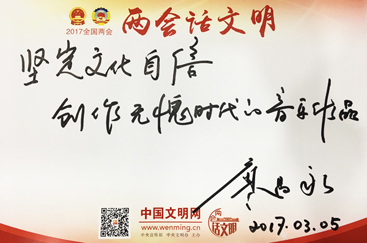 2017全国两会
两会话文明
坚定文化自信
创作无愧时代的音乐作品
中国文明网
www.wenming.cn
中央宣传部 中央文明办 主办
两会
话文明
2017.03.05